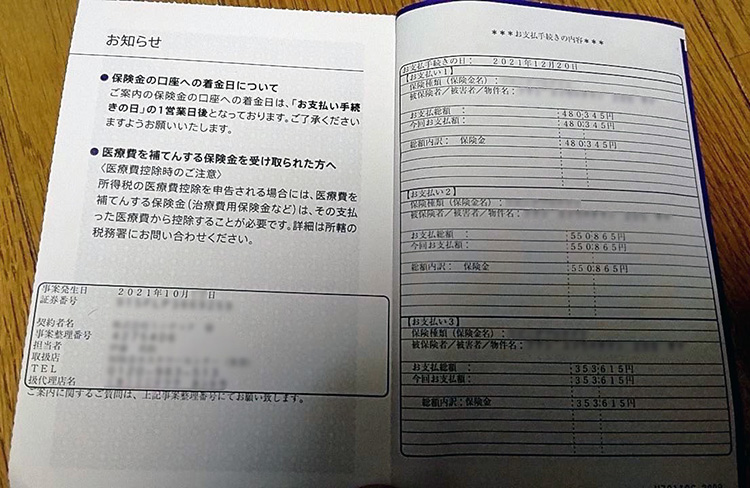 お知らせ
● 保険金の口座への着金日について
ご案内の保険金の口座への着金日は、「お支払い手続
きの日」の1営業日後となっております。ご了承ください
ますようお願いいたします。
● 医療費を補てんする保険金を受け取られた方へ
〈医療費控除時のご注意〉
所得税の医療費控除を申告される場合には、医療費を
補てんする保険金(治療費用保険金など)は、その支払
った医療費から控除することが必要です。詳細は所轄の
税務署にお問い合わせください。
事案発生日 2021年10月 日
証券番号
契約者名
事案整理番号
担当者
取扱店
TEL
扱代理店名
ご案内に関するご質問は、上記事案整理番号にてお願い致します。
***お支払手続きの内容***
お支払手続きの日: 2021年12月20日
【お支払い1】
保険種類(保険金名):
被保険者/被害者/物件名:
お支払総額 : 480,345円
今回お支払額 : 480,345円
総額内訳: 保険金 480,345円
【お支払い2】
保険種類(保険金名):
被保険者/被害者/物件名:
お支払総額 : 550,865円
今回お支払額 : 550,865円
総額内訳: 保険金 550,865円
【お支払い3】
保険種類(保険金名):
被保険者/被害者/物件名:
お支払総額 : 353,615円
今回お支払額 : 353,615円
総額内訳:保険金 353,615円